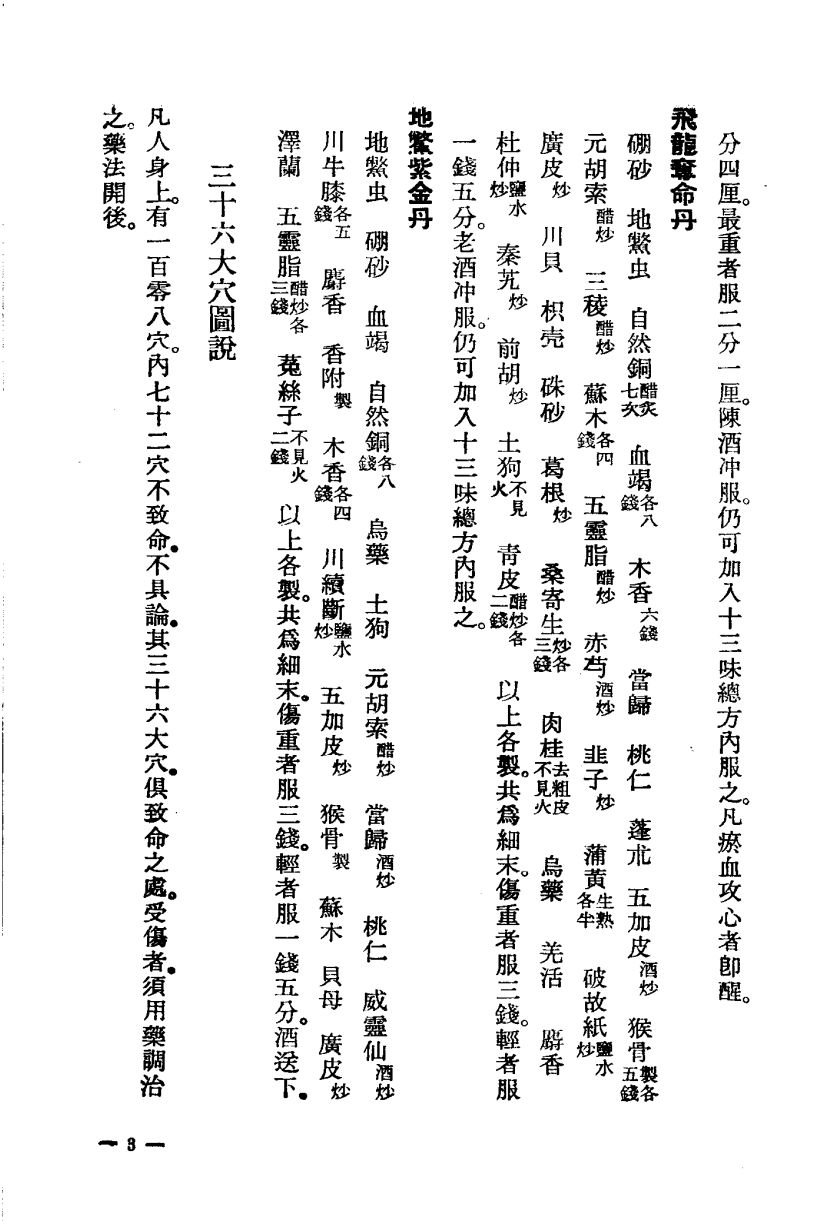 分四厘。最重者服二分一厘。陳酒冲服。仍可加入十三味總方內服之。凡瘀血攻心者卽醒。
飛龍奪命丹
硼砂 地鱉虫 自然銅醋炙七次 血竭各八錢 木香六錢 當歸 桃仁 蓬朮 五加皮酒炒 猴骨製各五錢
元胡索醋炒 三稜醋炒 蘇木各四錢 五靈脂醋炒 赤芍酒炒 韭子炒 蒲黃生熟各半 破故紙鹽水炒
廣皮炒 川貝 枳壳 硃砂 葛根炒 桑寄生炒各三錢 肉桂去粗皮不見火 烏藥 羌活 麝香
杜仲鹽水炒 秦艽炒 前胡炒 土狗不見火 靑皮醋炒各二錢 以上各製。共爲細末。傷重者服三錢。輕者服
一錢五分。老酒冲服。仍可加入十三味總方內服之。
地鱉紫金丹
地鱉虫 硼砂 血竭 自然銅各八錢 烏藥 土狗 元胡索醋炒 當歸酒炒 桃仁 威靈仙酒炒
川牛膝各五錢 麝香 香附製 木香各四錢 川續斷鹽水炒 五加皮炒 猴骨製 蘇木 貝母 廣皮炒
澤蘭 五靈脂醋炒各三錢 菟絲子不見火二錢 以上各製。共爲細末。傷重者服三錢。輕者服一錢五分。酒送下。
三十六大穴圖說
凡人身上。有一百零八穴。內七十二穴不致命。不具論。其三十六大穴。俱致命之處。受傷者。須用藥調治
之。藥法開後。
— 3 —